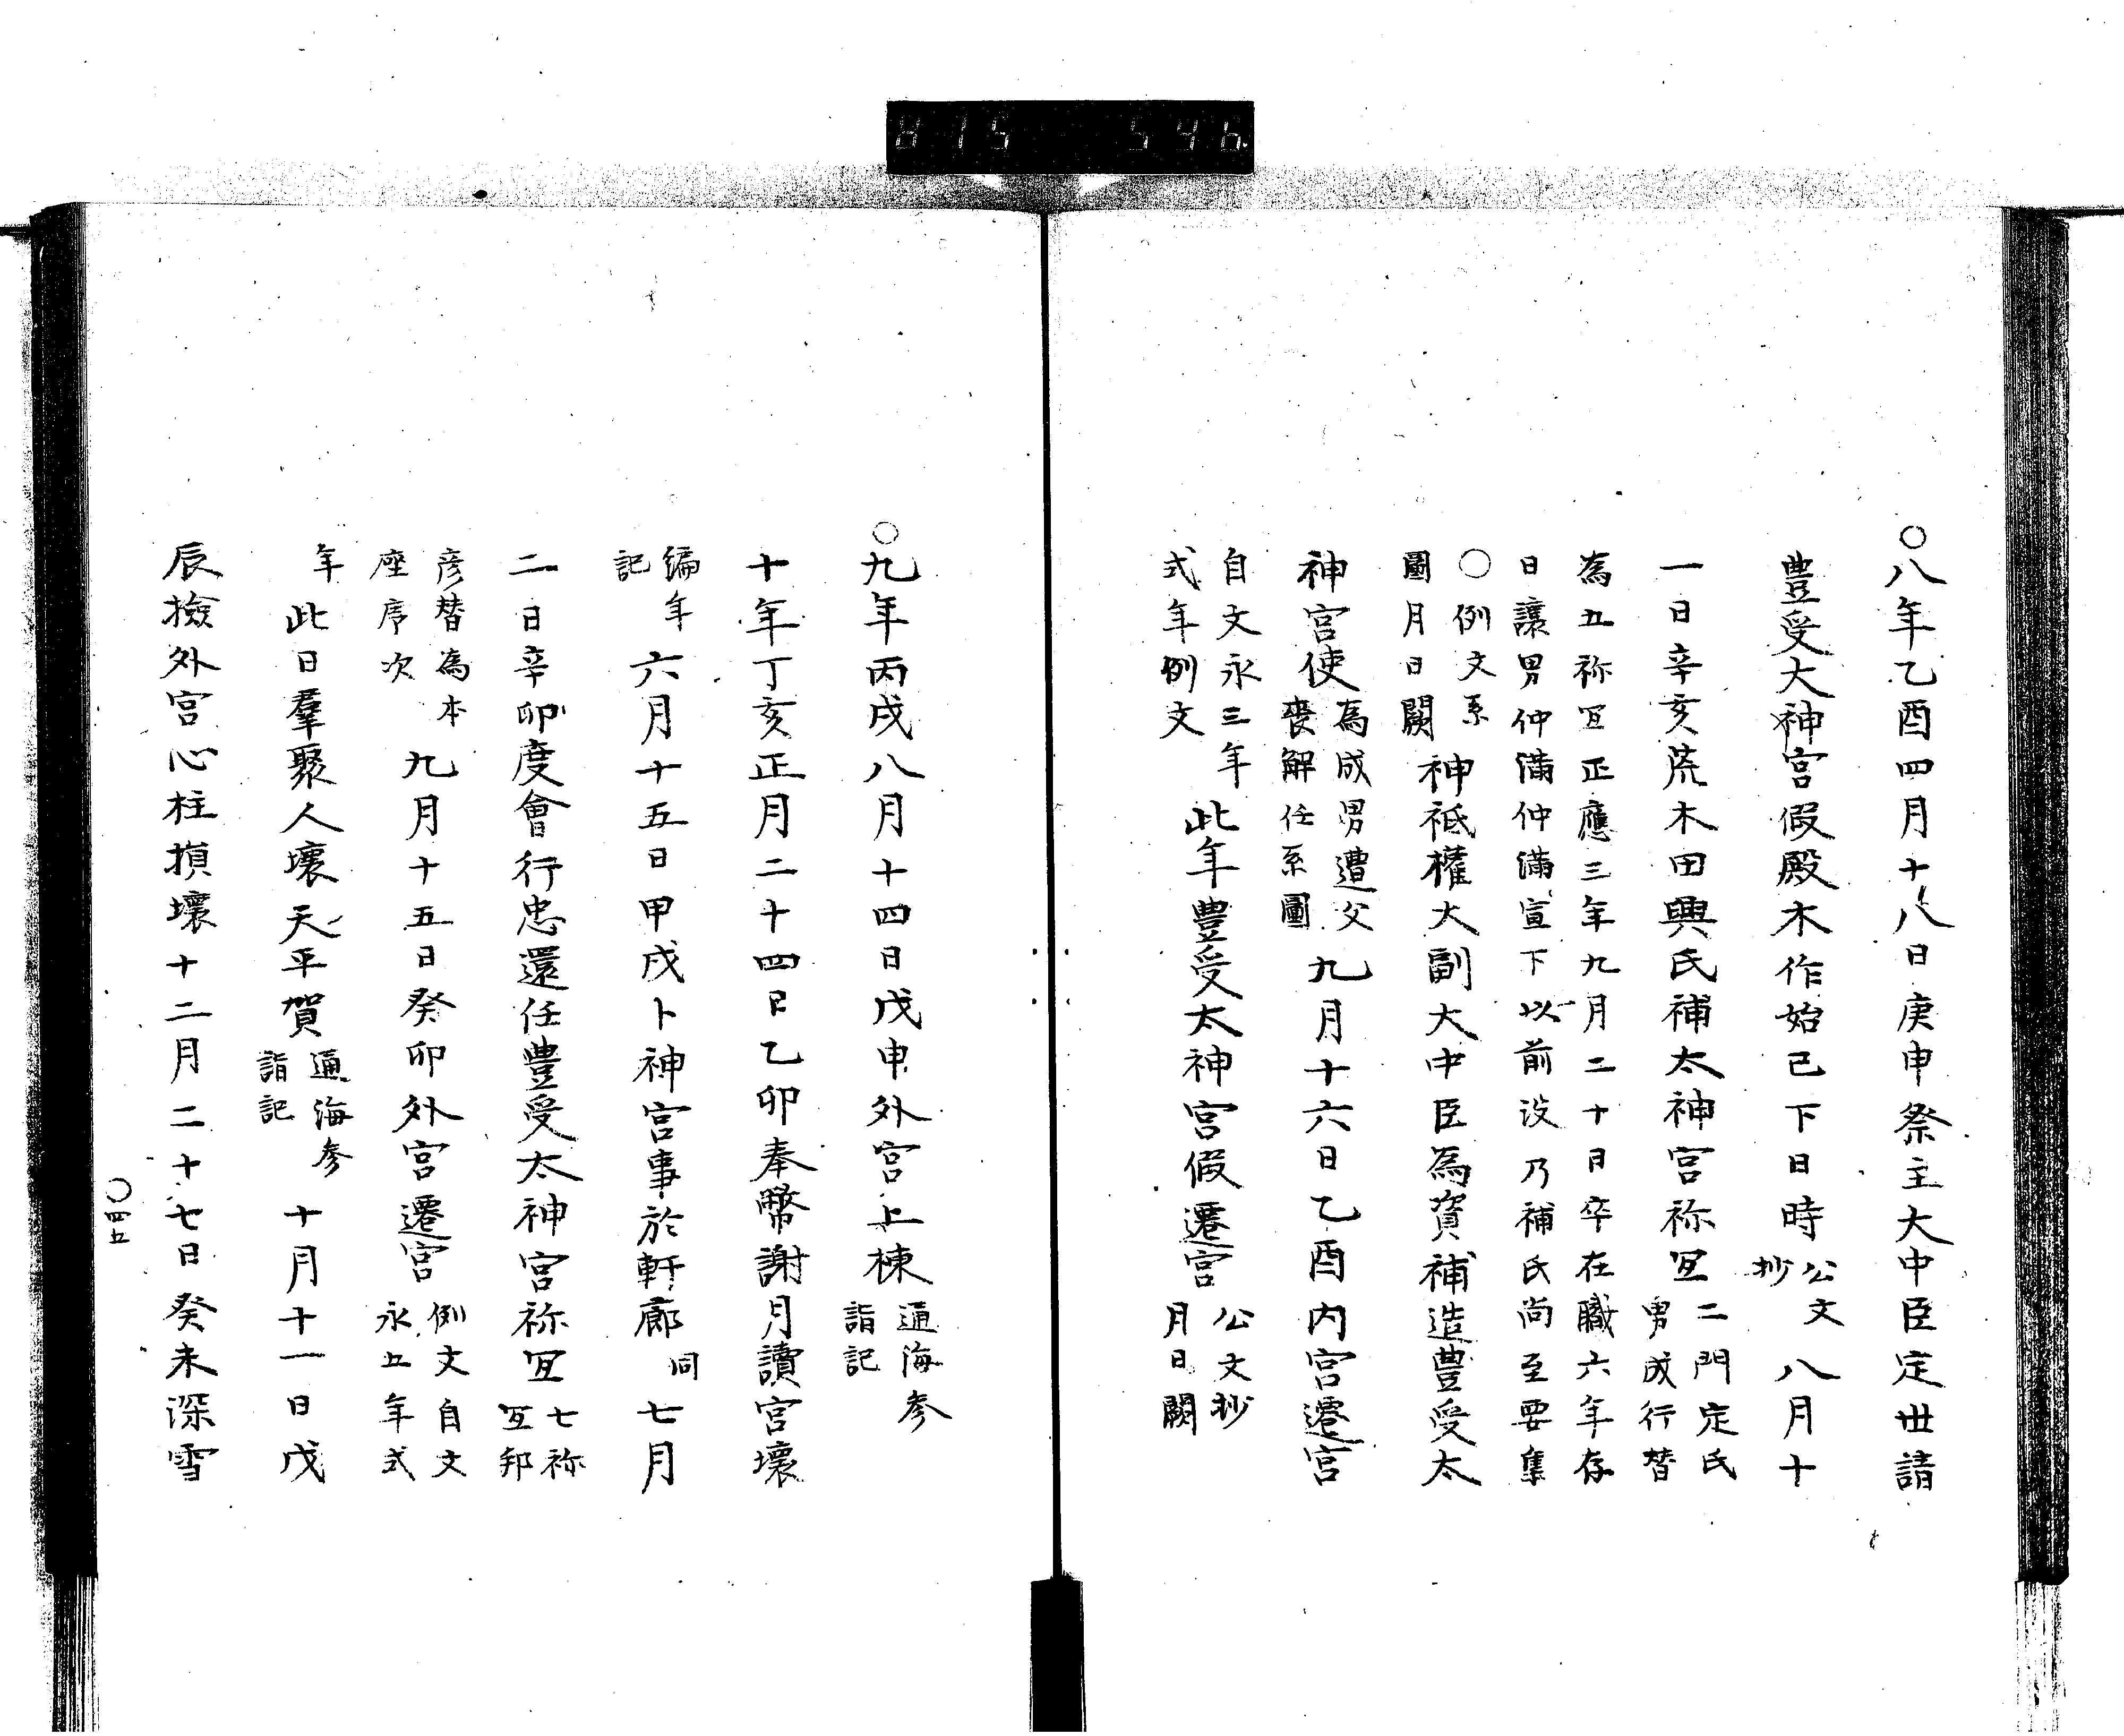 815 546
〇八年乙酉四月十八日庚申祭主大中臣定世請
豊受大神宮假殿木作始已下日時公文抄八月十
一日辛亥荒木田興氏補太神宮祢冝二門定氏男成行替
為五祢冝正應三年九月二十日卒在職六年存
日讓男仲滿仲滿宣下以前没乃補氏尚至要集
〇例文系圖月日闕神祗權大副大中臣為資補造豊受太
神宮使為成男遭父喪解任系圖九月十六日乙酉内宮遷宮
自文永三年式年例文此年豊受太神宮假遷宮公文抄月日闕
〇九年丙戌八月十四日戊申外宮上棟通海参詣記
十年丁亥正月二十四日乙卯奉幣謝月讀宮壞
編年記六月十五日甲戌卜神宮事於軒廊同七月
二日辛卯度會行忠還任豊受太神宮祢冝七祢冝邦
彦替為本座序次九月十五日癸卯外宮遷宮例文自文永五年式
年此日羣聚人壞天平賀通海参詣記十月十一日戊
辰撿外宮心柱損壞十二月二十七日癸未深雪
〇四五